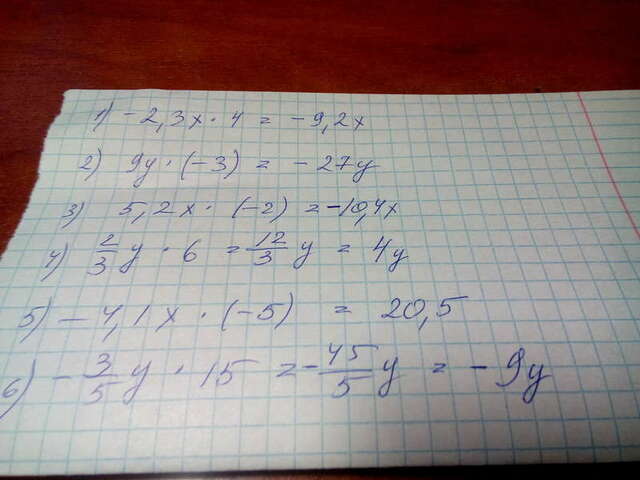 1) -2,3x · 4 = -9,2x
2) 9y · (-3) = -27y
3) 5,2x · (-2) = -10,4x
4) 2/3 y · 6 = 12/3 y = 4y
5) -4,1x · (-5) = 20,5
6) -3/5 y · 15 = -45/5 y = -9y